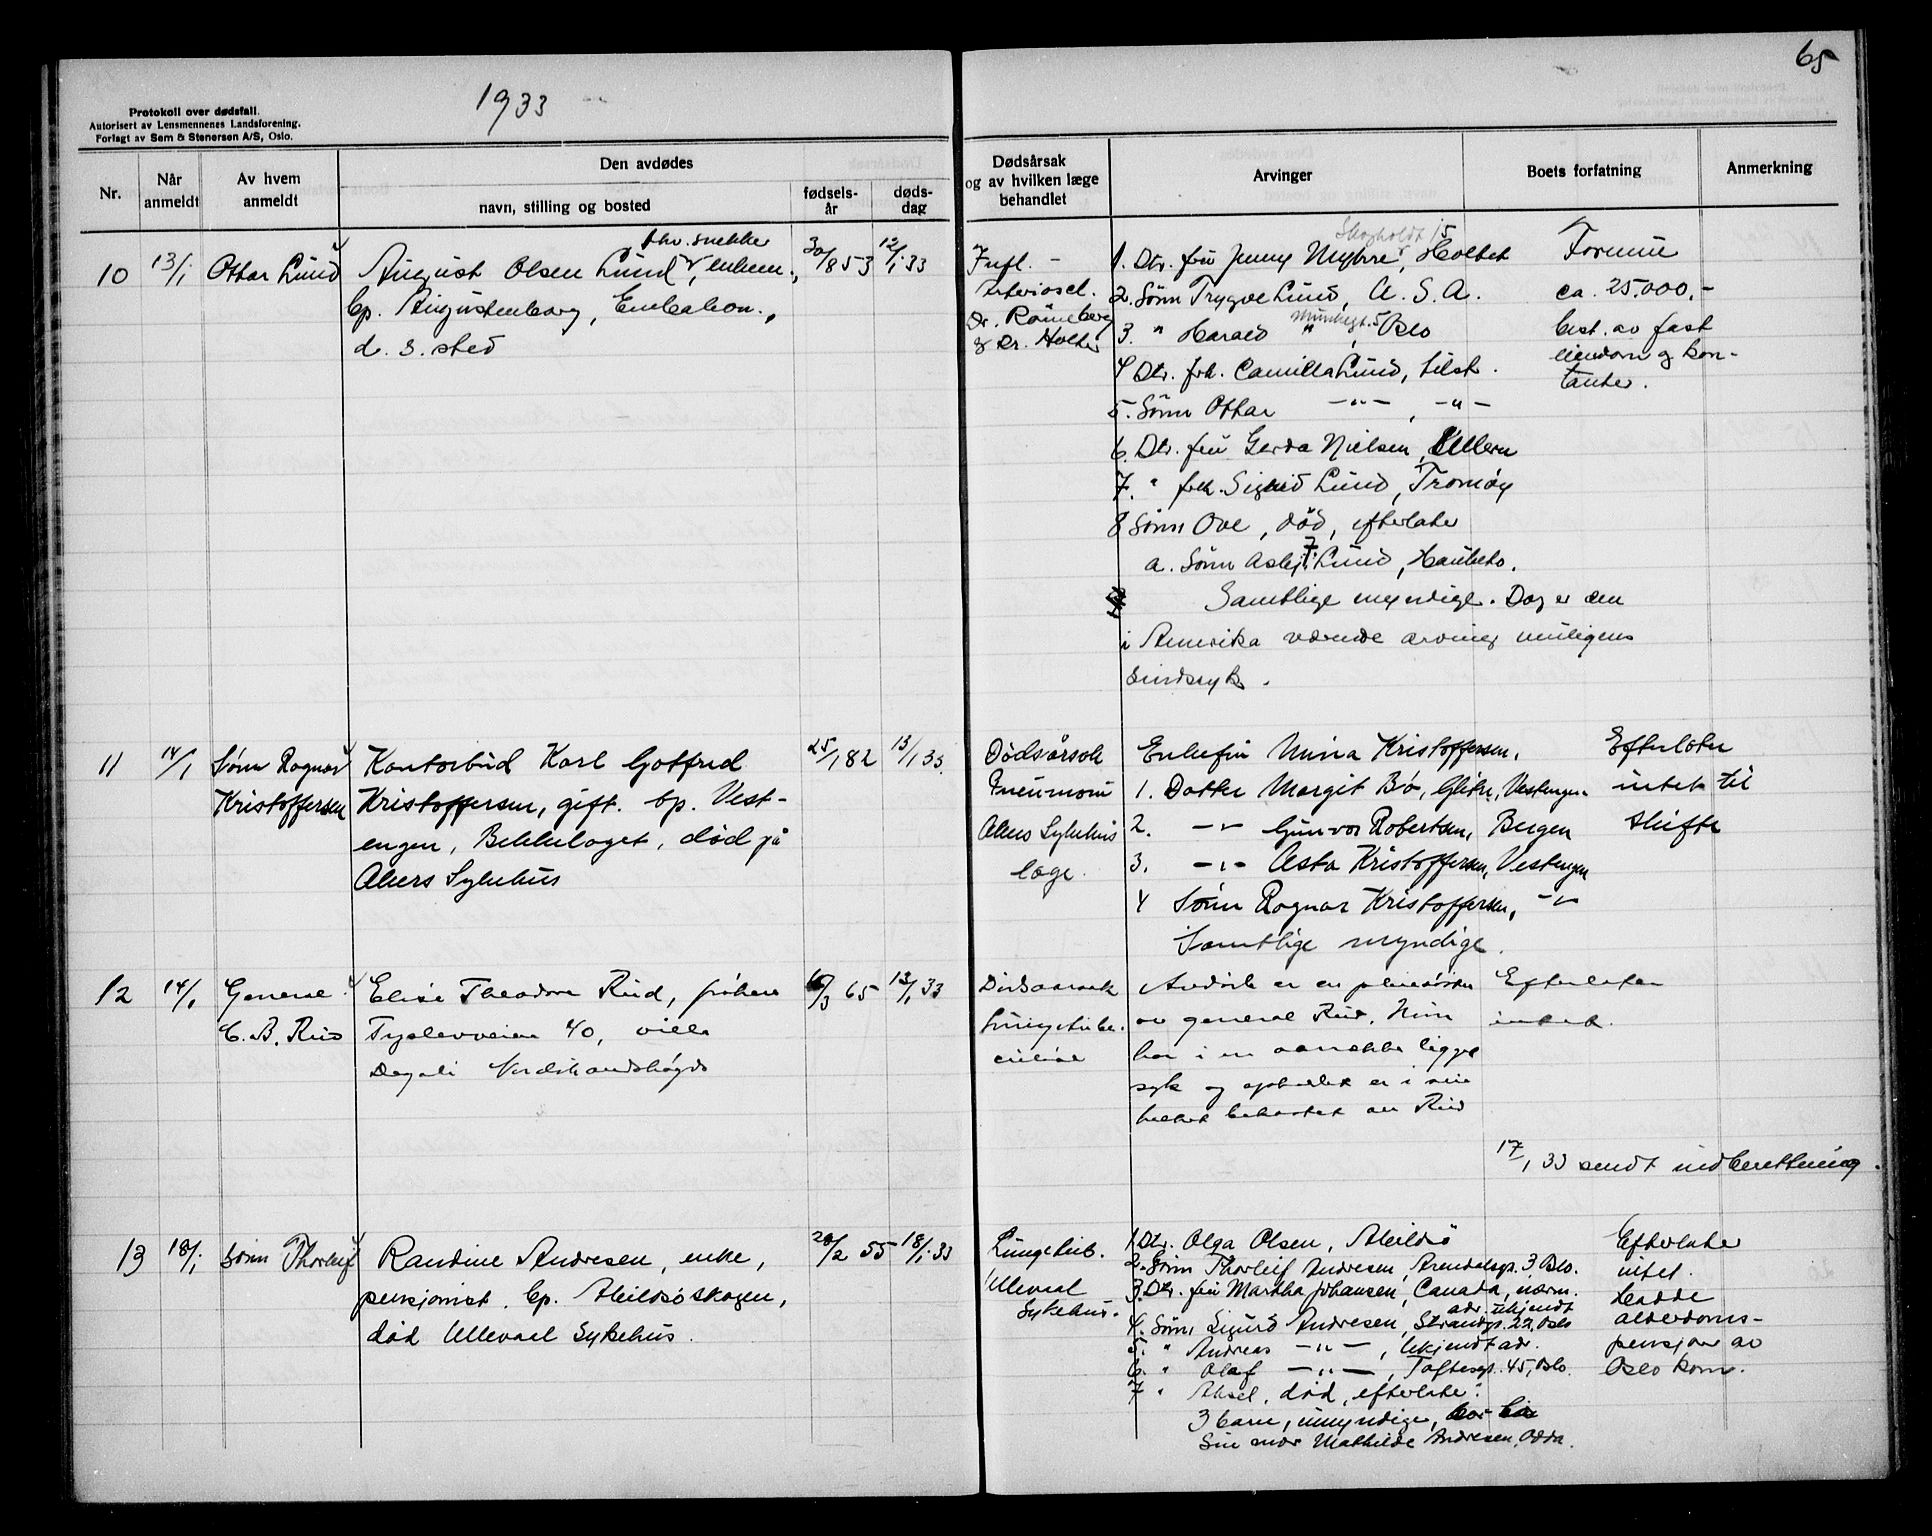 65
1933
Protokoll over dødsfall.
Autorisert av Lensmennenes Landsforening.
Forlagt av Sem & Stenersen A/S, Oslo.
Nr.
Når anmeldt
Av hvem anmeldt
Den avdødes
navn, stilling og bosted
fødsels-år
døds-dag
Dødsårsak og av hvilken læge behandlet
Arvinger
Boets forfatning
Anmerkning
10 13/1 Ottar Lund
fhv. snekker
August Olsen Lund, enkem.,
bp. Augustenborg,
d. s. sted
30/8 53 12/1 33
Infl. -
Arterioscl.
Dr. Råneberg
& Dr. Holter
Skogholdt 15
1. Dtr. fru Jenny Myhre, Holtet
2. Sønn Trygve Lund, U.S.A.
Munkegt. 5
3. " Harald " , Oslo
4 Dtr. frk. Camilla Lund, tilst.
5. Sønn Ottar -"- , -"-
6. Dtr. fru Gerda Nielsen, Ullern
7. " frk. Sigrid Lund, Tromøy
8 Sønn Ove, død, efterlater
a. Sønn Asbj. Lund, Hauketo.
Samtlige myndige. Dog er den
i Amerika værende arving muligens
sindssyk.
Formue
ca. 25.000,-
best. av fast
eiendom og kon-
tanter.
11 14/1 Sønn Ragnar
Kristoffersen
Kontorbud Karl Gotfred
Kristoffersen, gift. bp. Vest-
engen, Bekkelaget, død på
Akers Sykehus
25/1 82 13/1 33.
Dødsårsak
Pneumoni
Akers Sykehus
læge.
Enkefru Mina Kristoffersen,
1. Datter Margit Bø, Vestengen
2. -"- Gunvor Robertsen, Bergen
3. -"- Asta Kristoffersen, Vestengen
4 Sønn Ragnar Kristoffersen, -"-
Samtlige myndige.
Efterlater
intet til
skifte
12 14/1 General
C. B. Rud
Elise Theodora Rud, frøken
40, villa
Nordstrandshøgda
/3 65 13/1 33
Dødsaarsak
Lungetube.
Avdøde er en søster
av general Rud. Hun
har i en aarrekke ligget
syk og er i sin
helhet bekostet av Rud
Efterlater
intet.
17/1 33 sendt indberetning.
13 18/1 Sønn Thorleif
Randine Andresen, enke,
pensjonist. bp. Abildsøskogen,
død Ullevaal Sykehus.
20/2 55 18/1 33
Lungetub.
Ullevaal
Sykehus.
1 Dtr. Olga Olsen, Abildsø
2. Sønn Thorleif Andresen, Arendalsgt. 3 Oslo.
3. Dtr. fru Martha Johansen, Canada, nærm.
adr. ukjendt
4. Sønn Sigurd Andresen, Strandgt. 22, Oslo
5. " Andreas -"- , Ukjendt adr.
6. " Olaf -"- , Toftesgt. 45, Oslo.
7 " Aksel, død, efterlate:
3 barn, umyndige, hos
sin mor Mathilde Andresen, Odda.
Efterlater
intet.
Hadde
alderdoms-
pensjon av
Oslo kom.